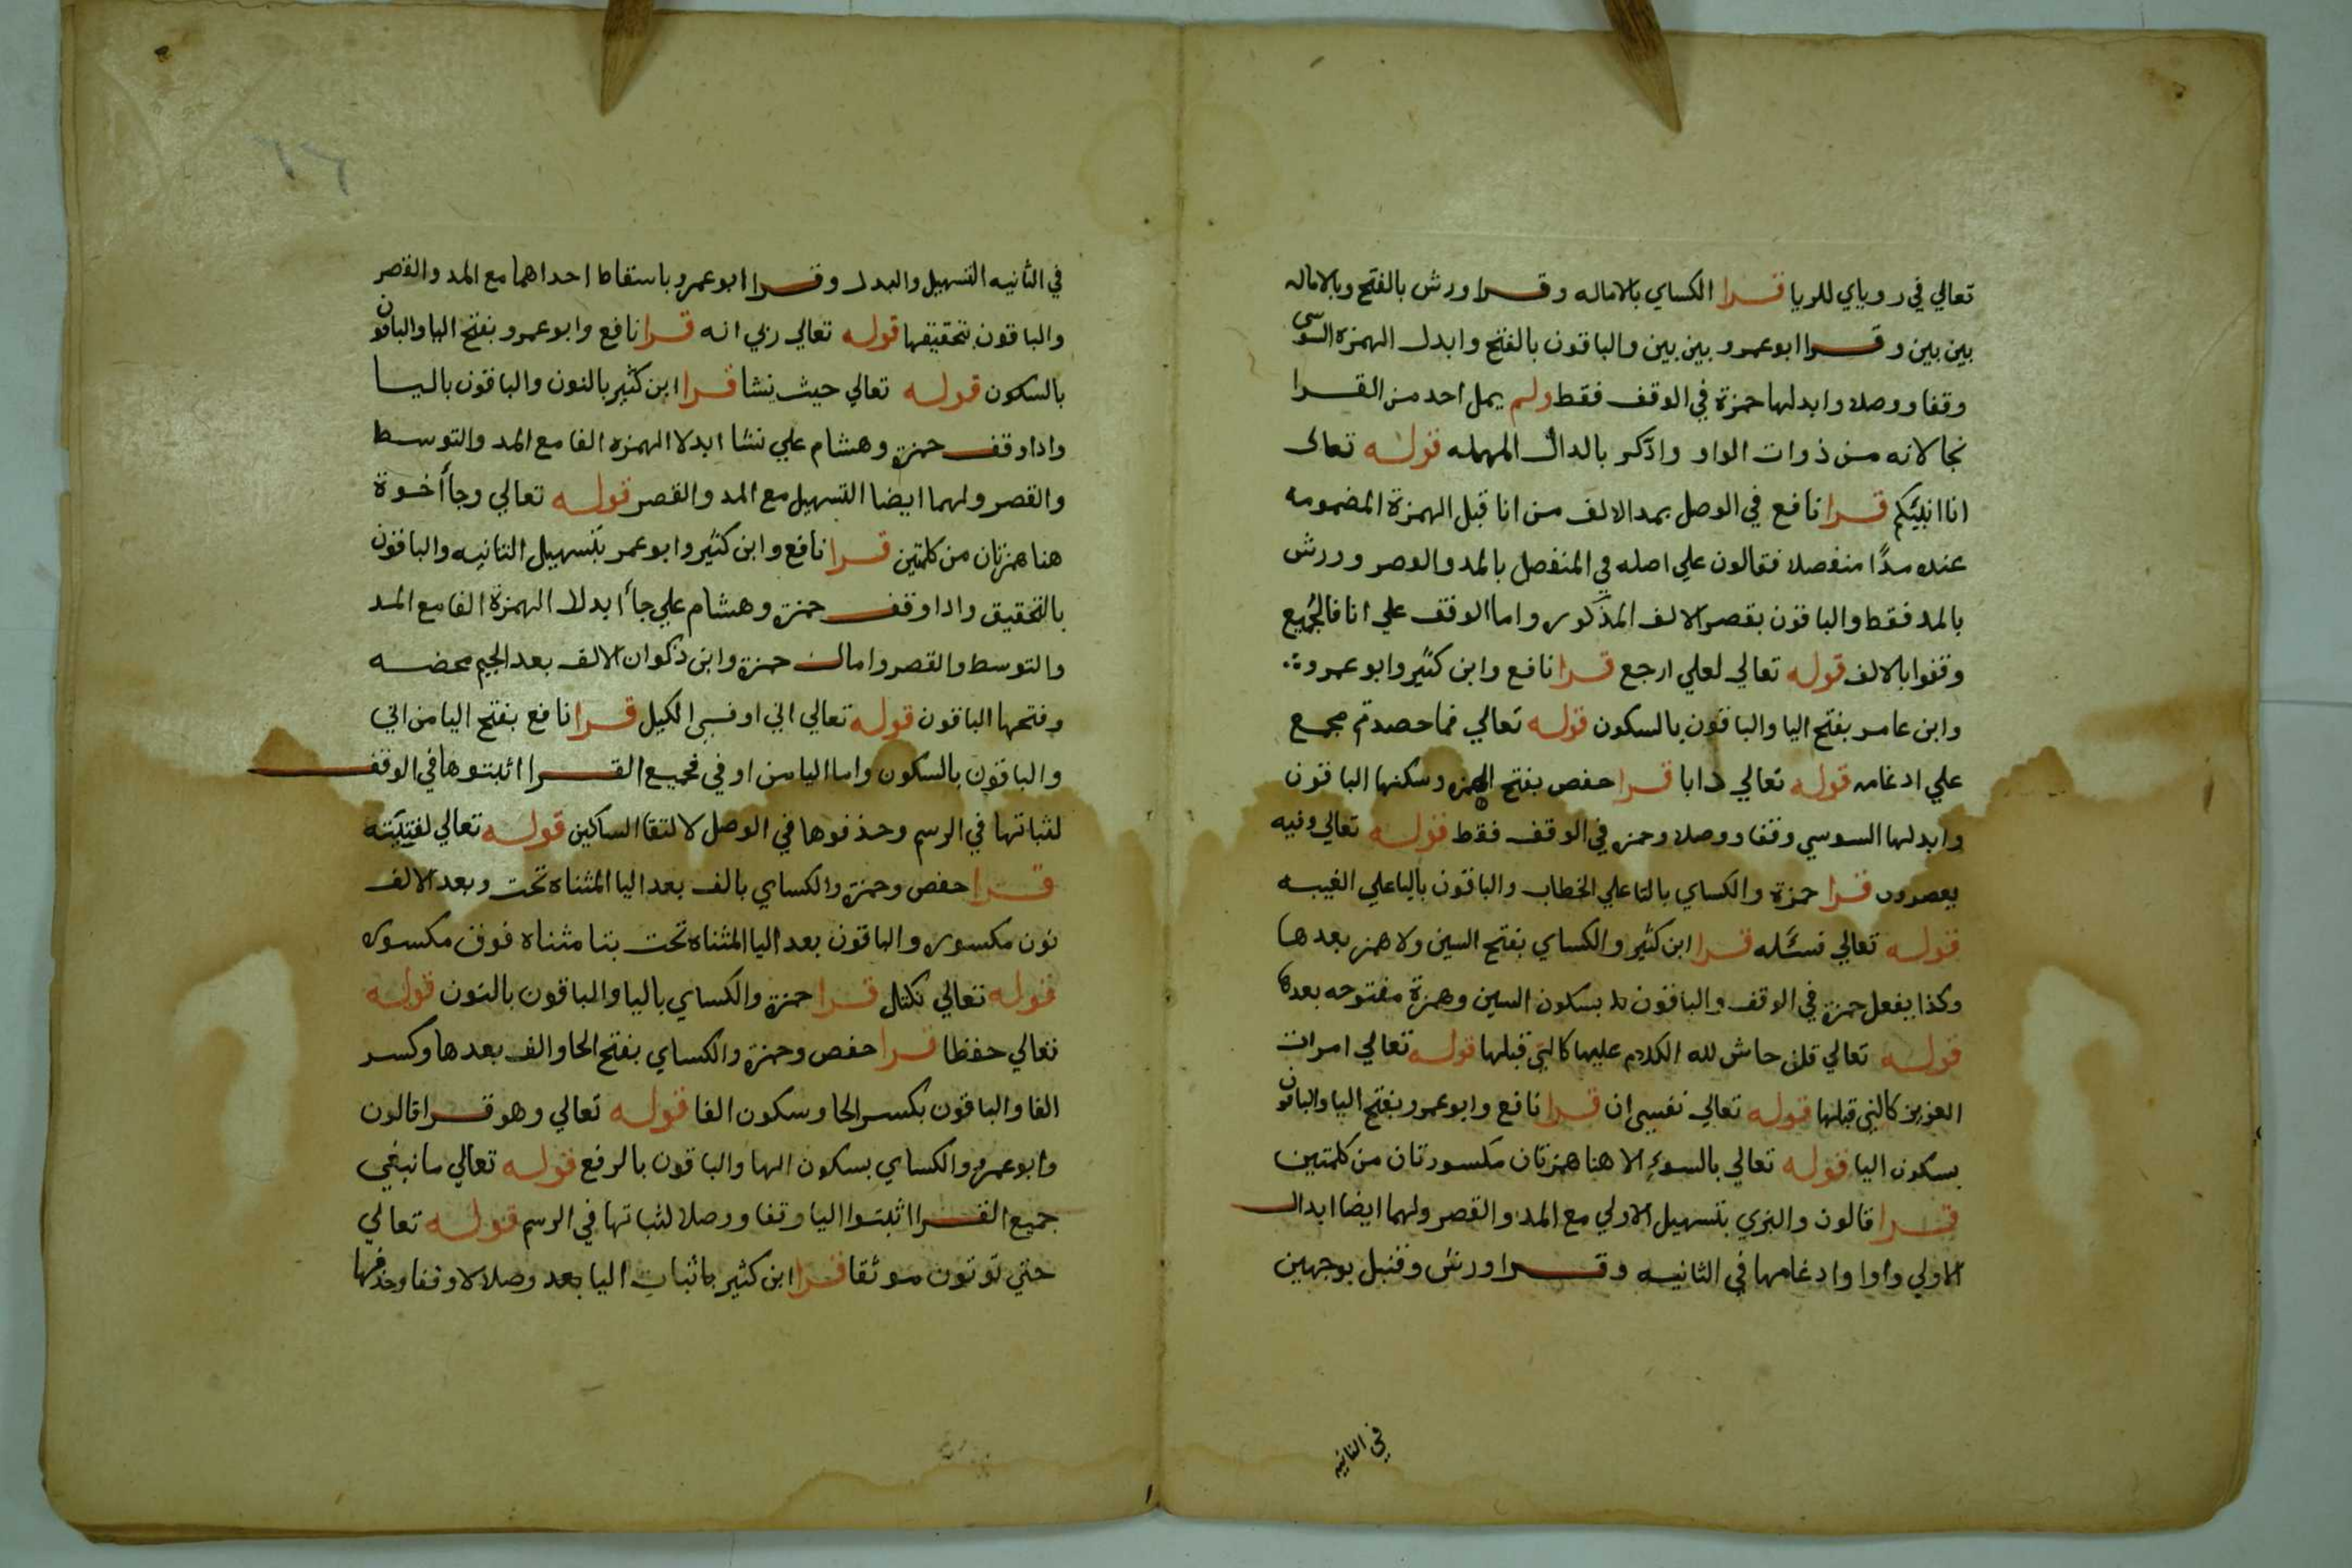 تعالي في روياي للريا قرا الكساي بالاماله وقرا ورش بالفتح وبالاماله
بين بين وقرا ابو عمرو بين بين والباقون بالفتح وابدل الهمزه السوسي
وقفا ووصلا وابدلها حمزة في الوقف فقط ولم يمل احد من القرا
نجا لانه من ذوات الواو وادكر بالدال المهمله قوله تعالى
انا انبئكم قرا نافع في الوصل بمد الالف من انا قبل الهمزة المضمومه
عنده مدًا منفصلا فقالون علي اصله في المنفصل بالمد والقصر وورش
بالمد فقط والباقون بقصر الالف المذكور واما الوقف علي انا فالجميع
وقفوا بالالف قوله تعالي لعلي ارجع قرا نافع وابن كثير وابو عمرو
وابن عامر بفتح اليا والباقون بالسكون قوله تعالي فما حصدتم مجمع
علي ادغامه قوله تعالي دابا قرا حفص بفتح الهمزه وسكنها الباقون
وابدلها السوسي وقفا ووصلا وحمزه في الوقف فقط قوله تعالي وفيه
يعصرون قرا حمزة والكساي بالتا علي الخطاب والباقون باليا علي الغيبه
قوله تعالي فسئله قرا ابن كثير والكساي بفتح السين ولا همز بعدها
وكذا يفعل حمزة في الوقف والباقون بسكون السين وهمزة مفتوحه بعدها
قوله تعالي قلن حاش لله الكلام عليها كالتي قبلها قوله تعالي امرات
العزيز كالتي قبلها قوله تعالي نفسي ان قرا نافع وابو عمرو بفتح اليا والباقون
بسكون اليا قوله تعالي بالسوء الا هنا همزتان مكسورتان من كلمتين
قرا قالون والبزي بتسهيل الاولي مع المد والقصر ولهما ايضا ابدال
الاولي واوا وادغامها في الثانيه وقرا ورش وقنبل بوجهين
في الثانيه
٦٦
في الثانيه التسهيل والبدل وقرا ابو عمرو باسقاط احداهما مع المد والقصر
والباقون بتحقيقها قوله تعالي ربي انه قرا نافع وابو عمرو بفتح اليا والباقون
بالسكون قوله تعالي حيث نشا قرا ابن كثير بالنون والباقون باليا
واداوقف حمزة وهشام علي نشا ابدلا الهمزه الفا مع المد والتوسط
والقصر ولهما ايضا التسهيل مع المد والقصر قوله تعالي وجأ أخوة
هنا همزتان من كلمتين قرا نافع وابن كثير وابو عمر بتسهيل الثانيه والباقون
بالتحقيق واداوقف حمزة وهشام علي جأ ابدلا الهمزة الفا مع المد
والتوسط والقصر وامال حمزة وابن ذكوان الالف بعد الجيم محضه
وفتحها الباقون قوله تعالي اني اوفي الكيل قرا نافع بفتح اليا من اني
والباقون بالسكون واما اليا من اوفي فجميع القرا اثبتوها في الوقف
لثباتها في الرسم وحذفوها في الوصل لالتقا الساكنين قوله تعالي لفتيته
قرا حفص وحمزة والكساي بالف بعد اليا المثناه تحت وبعد الالف
نون مكسوره والباقون بعد اليا المثناه تحت بتا مثناه فوق مكسوره
قوله تعالي نكتل قرا حمزة والكساي باليا والباقون بالنون قوله
تعالي حفظا قرا حفص وحمزة والكساي بفتح الحا والف بعدها وكسر
الفا والباقون بكسر الحا وسكون الفا قوله تعالي وهو قرا قالون
وابو عمرو والكساي بسكون الها والباقون بالرفع قوله تعالي ما نبغي
جميع القرا اثبتوا اليا وقفا ووصلا لثباتها في الرسم قوله تعالي
حتي توتون موثقا قرا ابن كثير باثبات اليا بعد وصلا لا وقفا وحذفها